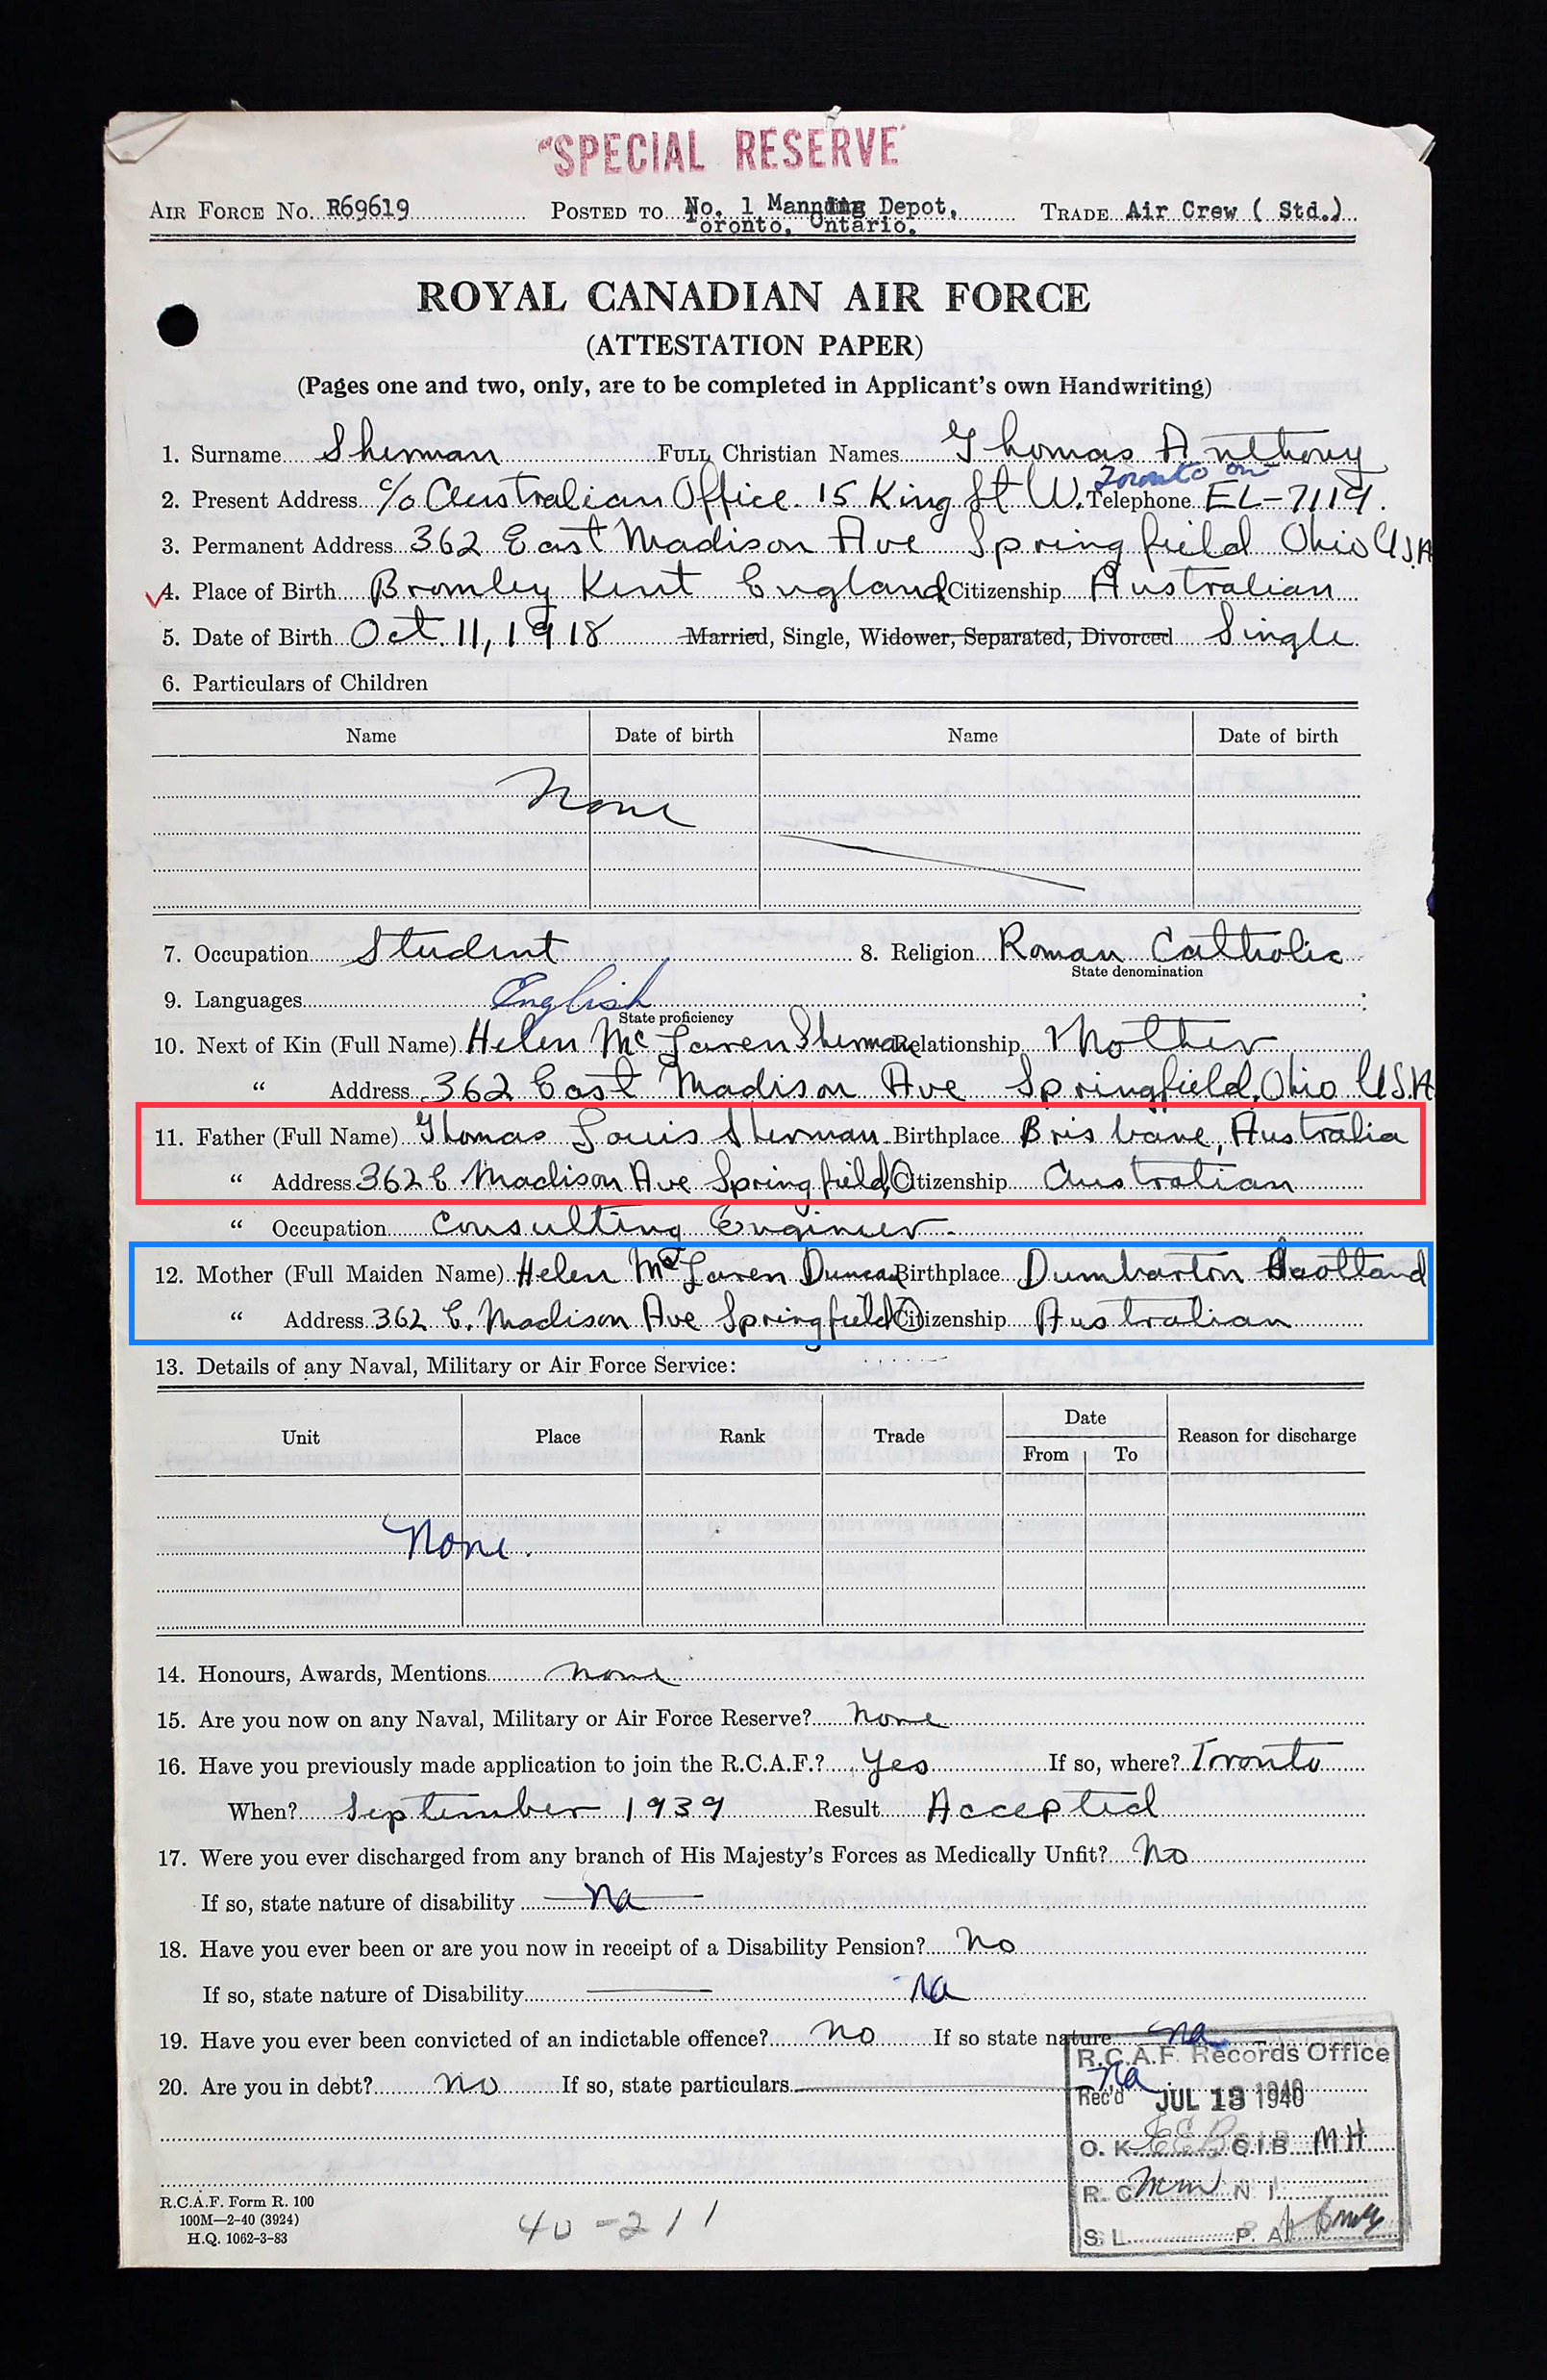 "SPECIAL RESERVE"
AIR FORCE NO. R69619 POSTED TO No. 1 Manning Depot, TRADE Air Crew ( Std.)
Toronto, Ontario.
ROYAL CANADIAN AIR FORCE
(ATTESTATION PAPER)
(Pages one and two, only, are to be completed in Applicant's own Handwriting)
1. Surname Sherman FULL Christian Names Thomas Anthony
2. Present Address c/o Australian Office. 15 King St W. Toronto on Telephone EL-7119.
3. Permanent Address 362 East Madison Ave Springfield Ohio U.S.A
4. Place of Birth Bromley Kent England Citizenship Australian
5. Date of Birth Oct. 11, 1918 Married, Single, Widower, Separated, Divorced Single
6. Particulars of Children
Name Date of birth Name Date of birth
None
7. Occupation Student 8. Religion Roman Catholic
State denomination
9. Languages English
State proficiency
10. Next of Kin (Full Name) Helen McLaren Sherman Relationship Mother
" Address 362 East Madison Ave Springfield, Ohio U.S.A
11. Father (Full Name) Thomas Louis Sherman Birthplace Brisbane, Australia
" Address 362 E Madison Ave Springfield, O Citizenship Australian
" Occupation Consulting Engineer.
12. Mother (Full Maiden Name) Helen McLaren Duncan Birthplace Dumbarton Scotland
" Address 362 E. Madison Ave Springfield O Citizenship Australian
13. Details of any Naval, Military or Air Force Service:
Unit Place Rank Trade Date Reason for discharge
From To
None.
14. Honours, Awards, Mentions none
15. Are you now on any Naval, Military or Air Force Reserve? none
16. Have you previously made application to join the R.C.A.F.? Yes If so, where? Toronto
When? September 1939 Result Accepted
17. Were you ever discharged from any branch of His Majesty's Forces as Medically Unfit? No
If so, state nature of disability Na
18. Have you ever been or are you now in receipt of a Disability Pension? No
If so, state nature of Disability Na
19. Have you ever been convicted of an indictable offence? No If so state nature na
20. Are you in debt? no If so, state particulars na
R.C.A.F. Records Office
Rec'd JUL 13 1940
O. K. EEB C.I.B. MH
R. C. N I.
S. L. P. A.
R.C.A.F. Form R. 100
100M—2-40 (3924)
H.Q. 1062-3-83
40-211